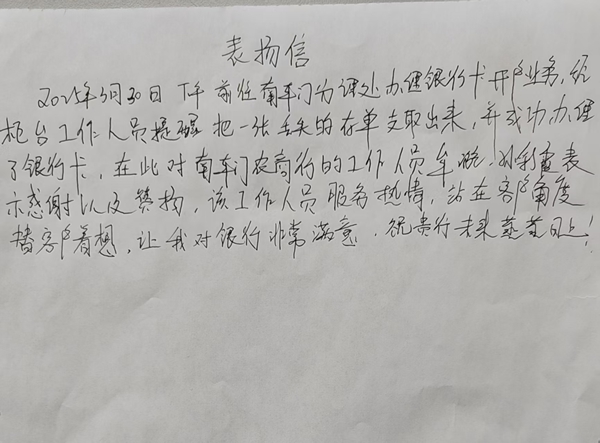 表扬信
2025年3月30日 下午前往南车门分理处办理银行卡开户业务,经
柜台工作人员提醒把一张丢失的存单支取出来,并成功办理
了银行卡,在此对南车门农商行的工作人员牟晓、刘彩霞表
示感谢以及赞扬,该工作人员服务热情,站在客户角度
替客户着想,让我对银行非常满意,祝贵行未来蒸蒸日上!